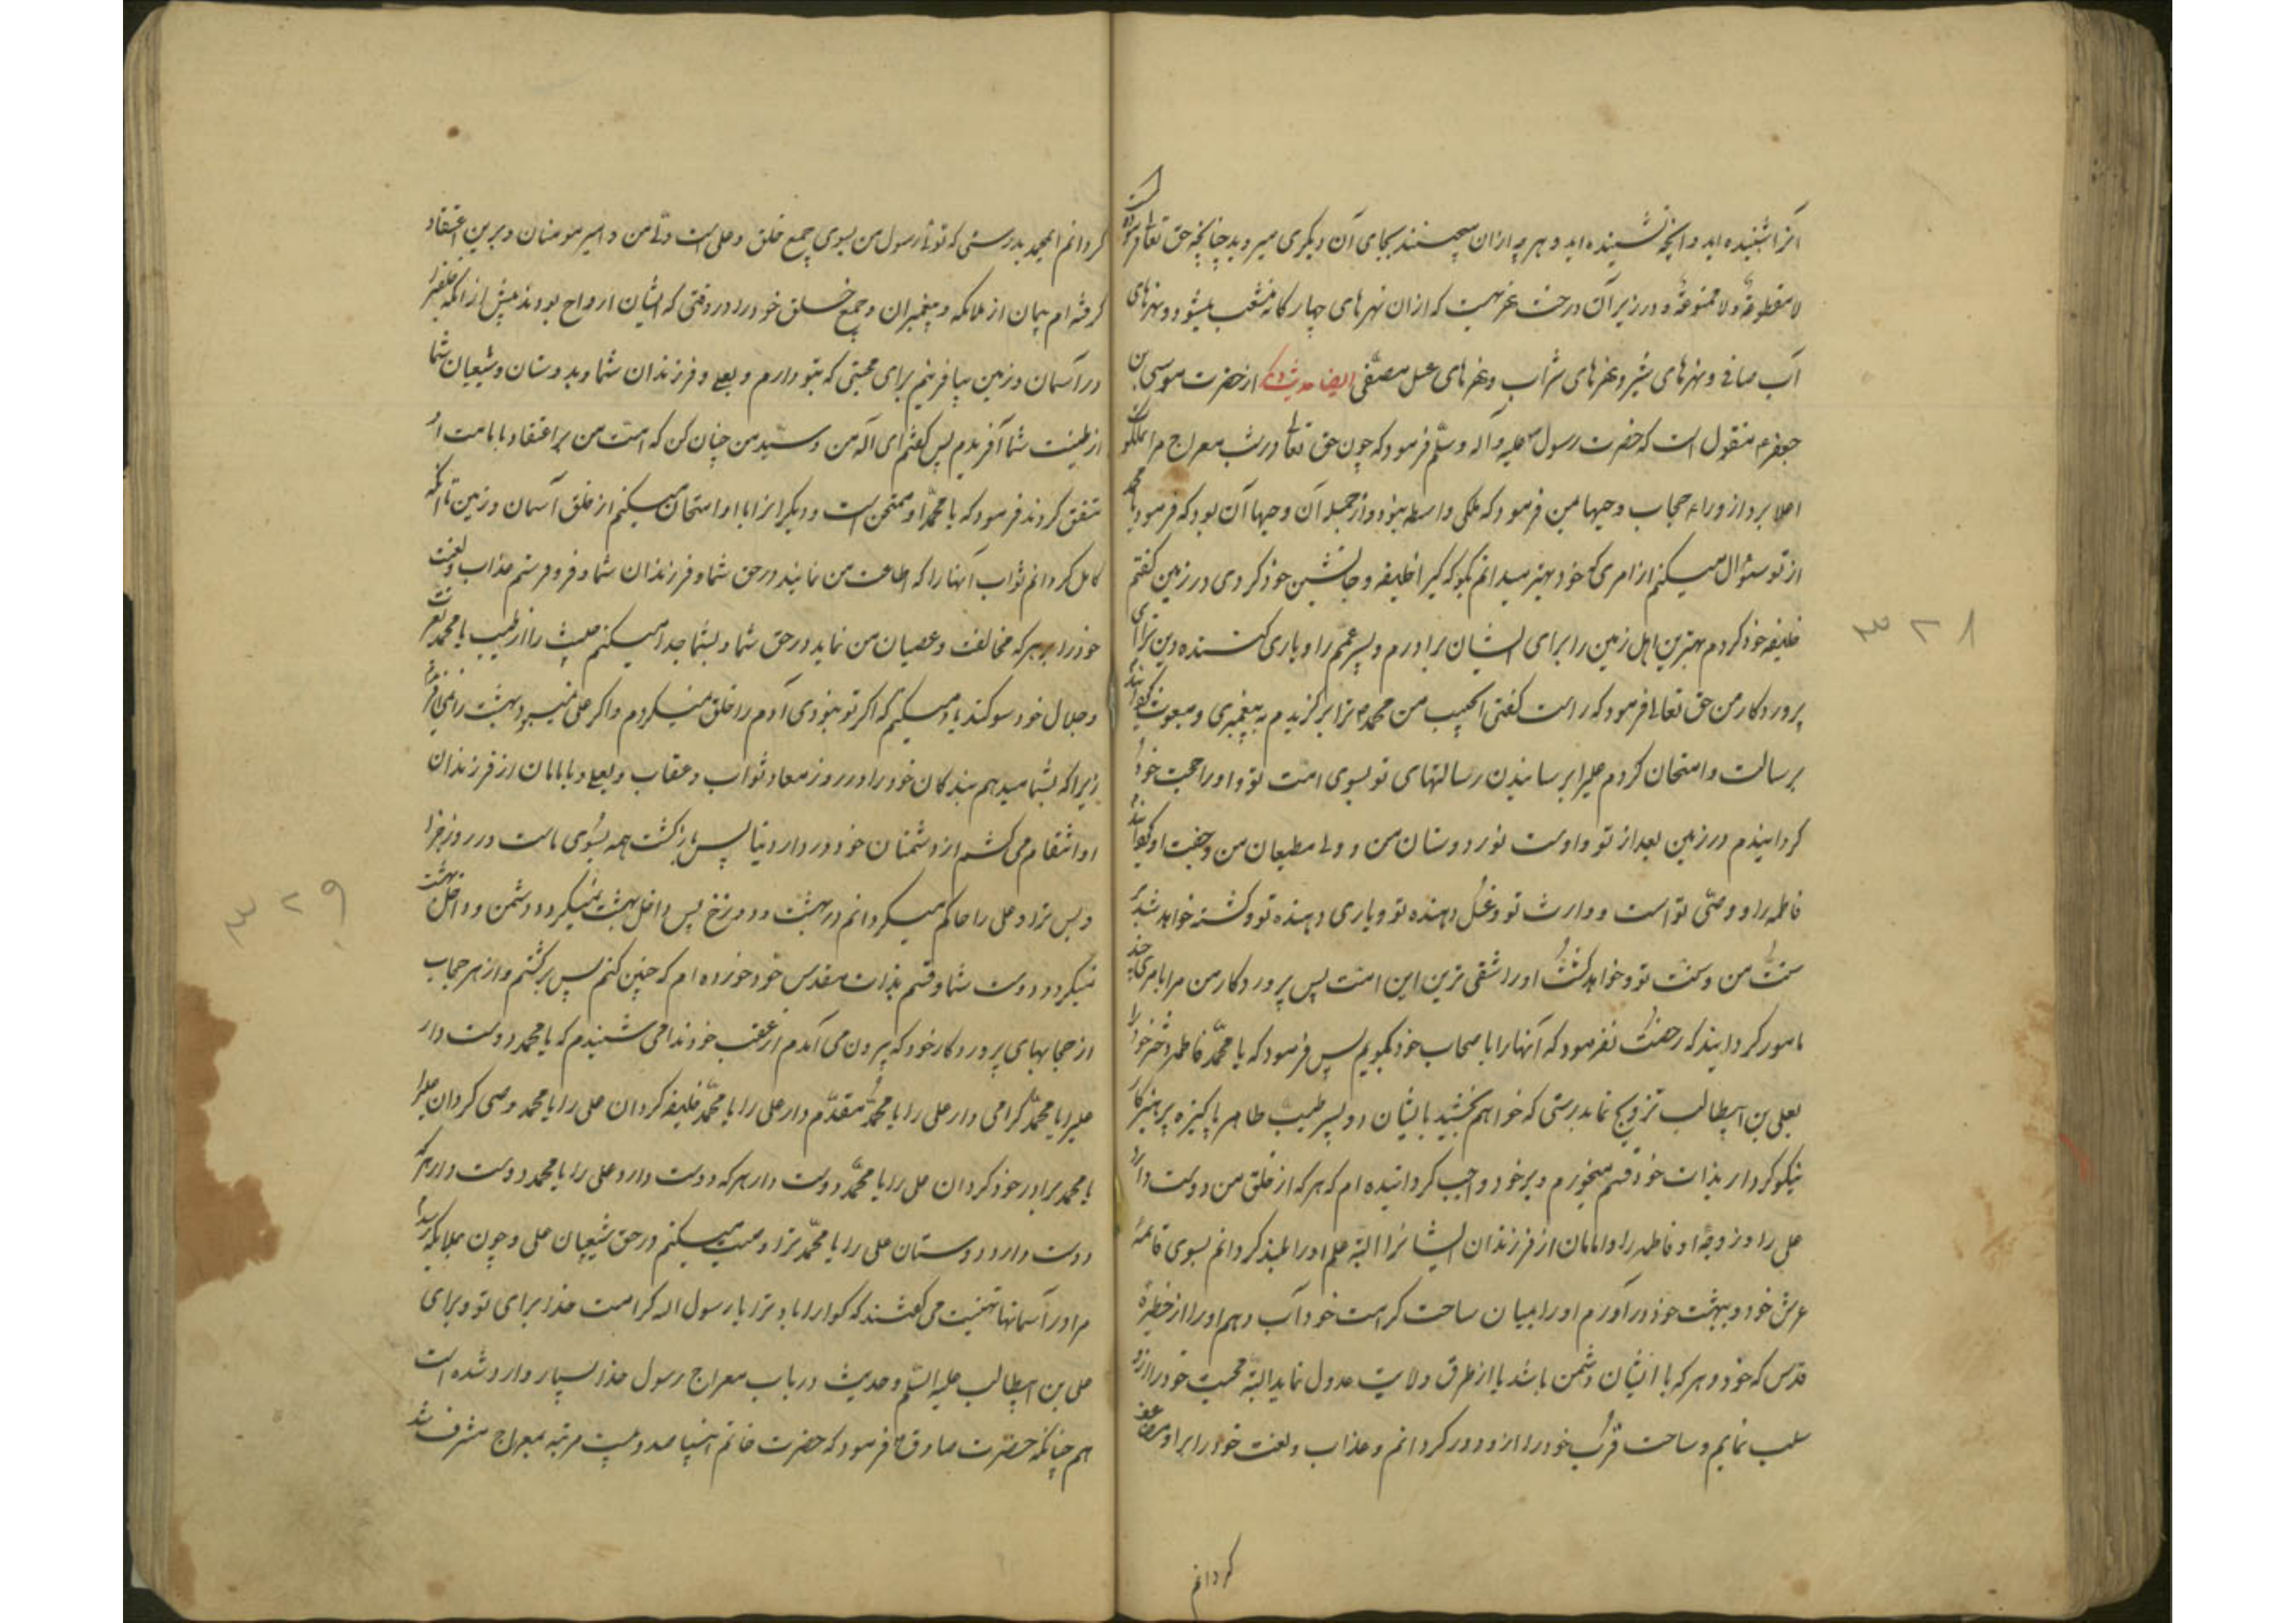 آنرا شنیده‌اید و آنچه نشنیده‌اید و هر چه از ان میچینند بجای آن دیگری میروید چنانچه حق تعالی فرموده است
لا مقطوعة ولا ممنوعة و در زیر آن درخت نهریست که از ان نهرهای چهار کانه منشعب میشود و نهرهای
آب صافی و نهرهای شیر و نهرهای شراب و نهرهای عسل مصفّی ایضا حدیث دیگر از حضرت موسی بن
جعفر ع منقول است که حضرت رسول صلی علیه و آله وسلّم فرمود که چون حق تعالی در شب معراج مرا بملکوت
اعلا برد از وراء حجاب وحیها بمن فرمود که ملکی واسطه نبود و از جمله آن وحیها آن بود که فرمود یا محمد
از تو سئوال میکنم از امری که خود بهتر میدانم بکو که کیرا خلیفه و جانشین خود کردی در زمین کفتم
خلیفه خود کردم بهترین اهل زمین را برای ایشان برادرم و پسر عمّم را و یاری کننده دین ترا ای
پرورد کار من حق تعالی فرمود که راست کفتی ایحبیب من محمد من ترا بر کزیدم به پیغمبری و مبعوث کردانیدم
برسالت و امتحان کردم علیرا برسانیدن رسالتهای تو بسوی امت تو و او را حجت خود
کردانیدم در زمین بعد از تو و اوست نور دوستان من و ولی مطیعان من و جفت او کردانیدم
فاطمه را و وصّی تو است و وارث تو و غسل دهنده تو و یاری دهنده تو و کشته خواهد شد بر
سنّت من و سنّت تو و خواهد کشت او را شقی ترین این امّت پس پرورد کار من مرا بامری چند
مامور کردانید که رخصت نفرمود که آنها را باصحاب خود بکویم پس فرمود که یا محمّد فاطمه دختر خود را
بعلی بن ابیطالب تزویج نما بدرستی که خواهم بخشید بایشان دو پسر طیب طاهر پاکیزه پرهیز کار
نیکو کردار بذات خود قسم میخورم و بر خود واجب کردانیده‌ام که هر که از خلق من دوست دارد
علی را و زوجه او فاطمه را و امامان از فرزندان ایشانرا البته علم او را بلند کردانم بسوی قائمه
عرش خود و ببهشت خود در آورم او را بمیان ساحت کرامت خود و آب دهم او را از حظیره
قدس که خود و هر که با ایشان دشمن باشد یا از طرق ولایت عدول نماید البته محبت خود را از او
سلب نمایم و ساحت قرب خود را از او دور کردانم و عذاب و لعنت خود را بر او مضاعف
کردانم
۳۲۸
کردانم ایمحمد بدرستی که توئی رسول من بسوی جمیع خلق و علی است ولّی من و امیر مومنان و بر این اعتقاد
کرفته‌ام پیمان از ملائکه و پیغمبران و جمیع خلق خود را در وقتی که ایشان ارواح بودند پیش از انکه خلقیرا
در آسمان و زمین بیافرینم برای محبتی که بتو دارم و بعلی و فرزندان شما و بدوستان و شیعیان شما
از طینت شما آفریدم پس کفتم ای اله من و سیّد من چنان کن که امّت من بر اعتقاد با امامت او
متفق کردند فرمود که یا محمّد او ممتحن است و دیکرانرا باو امتحان میکنم از خلق آسمان و زمین تا آنکه
کامل کردانم ثواب آنها را که اطاعت من نمایند در حق شما و فرزندان شما و فرو فرستم عذاب و لعنت
خود را بر هر که مخالفت و عصیان من نماید در حق شما و بشما جدا میکنم خبیث را از طیب یا محمد بعزّت
و جلال خود سوکند یاد میکنم که اکر تو نبودی آدم را خلق نمیکردم و اکر علی نمیبود بهشت را نمی افریدم
زیرا که بشما میدهم بندکان خود را در روز معاد ثواب و عقاب و بعلی و بامامان از فرزندان
او انتقام می کشم از دشمنان خود در دار دنیا پس بازکشت همه بسوی ماست در روز جزا
و بس ترا و علی را حاکم میکردانم در بهشت و دوزخ پس داخل بهشت نمیکردد دشمن و داخل بهشت
نمیکردد دوست شما و قسم بذات مقدس خود خورده‌ام که چنین کنم پس برکشتم و از هر حجاب
از حجابهای پرورد کار خود که بیرون می آمدم از عقب خود ندا می شنیدم که یا محمد دوست دار
علیرا یا محمّد کرامی دار علی را یا محمّد مقدّم دار علی را یا محمّد خلیفه کردان علی را یا محمد وصی کردان علیرا
یا محمد برادر خود کردان علی را یا محمّد دوست دار هر که دوست دارد علی را یا محمد دوست دار هر که
دوست دارد دوستان علی را یا محمّد ترا وصیت میکنم در حق شیعیان علی و چون بملائکه رسیدم
مرا در آسمانها تهنیت می کفتند که کوارا باد ترا یا رسول اله کرامت خدا برای تو و برای
علی بن ابیطالب علیه السّلم و حدیث در باب معراج رسول خدا بسیار وارد شده است
هم چنانکه حضرت صادق ع فرمود که حضرت خاتم انبیا صد و بیست مرتبه بمعراج مشرف شد
۳۲۹